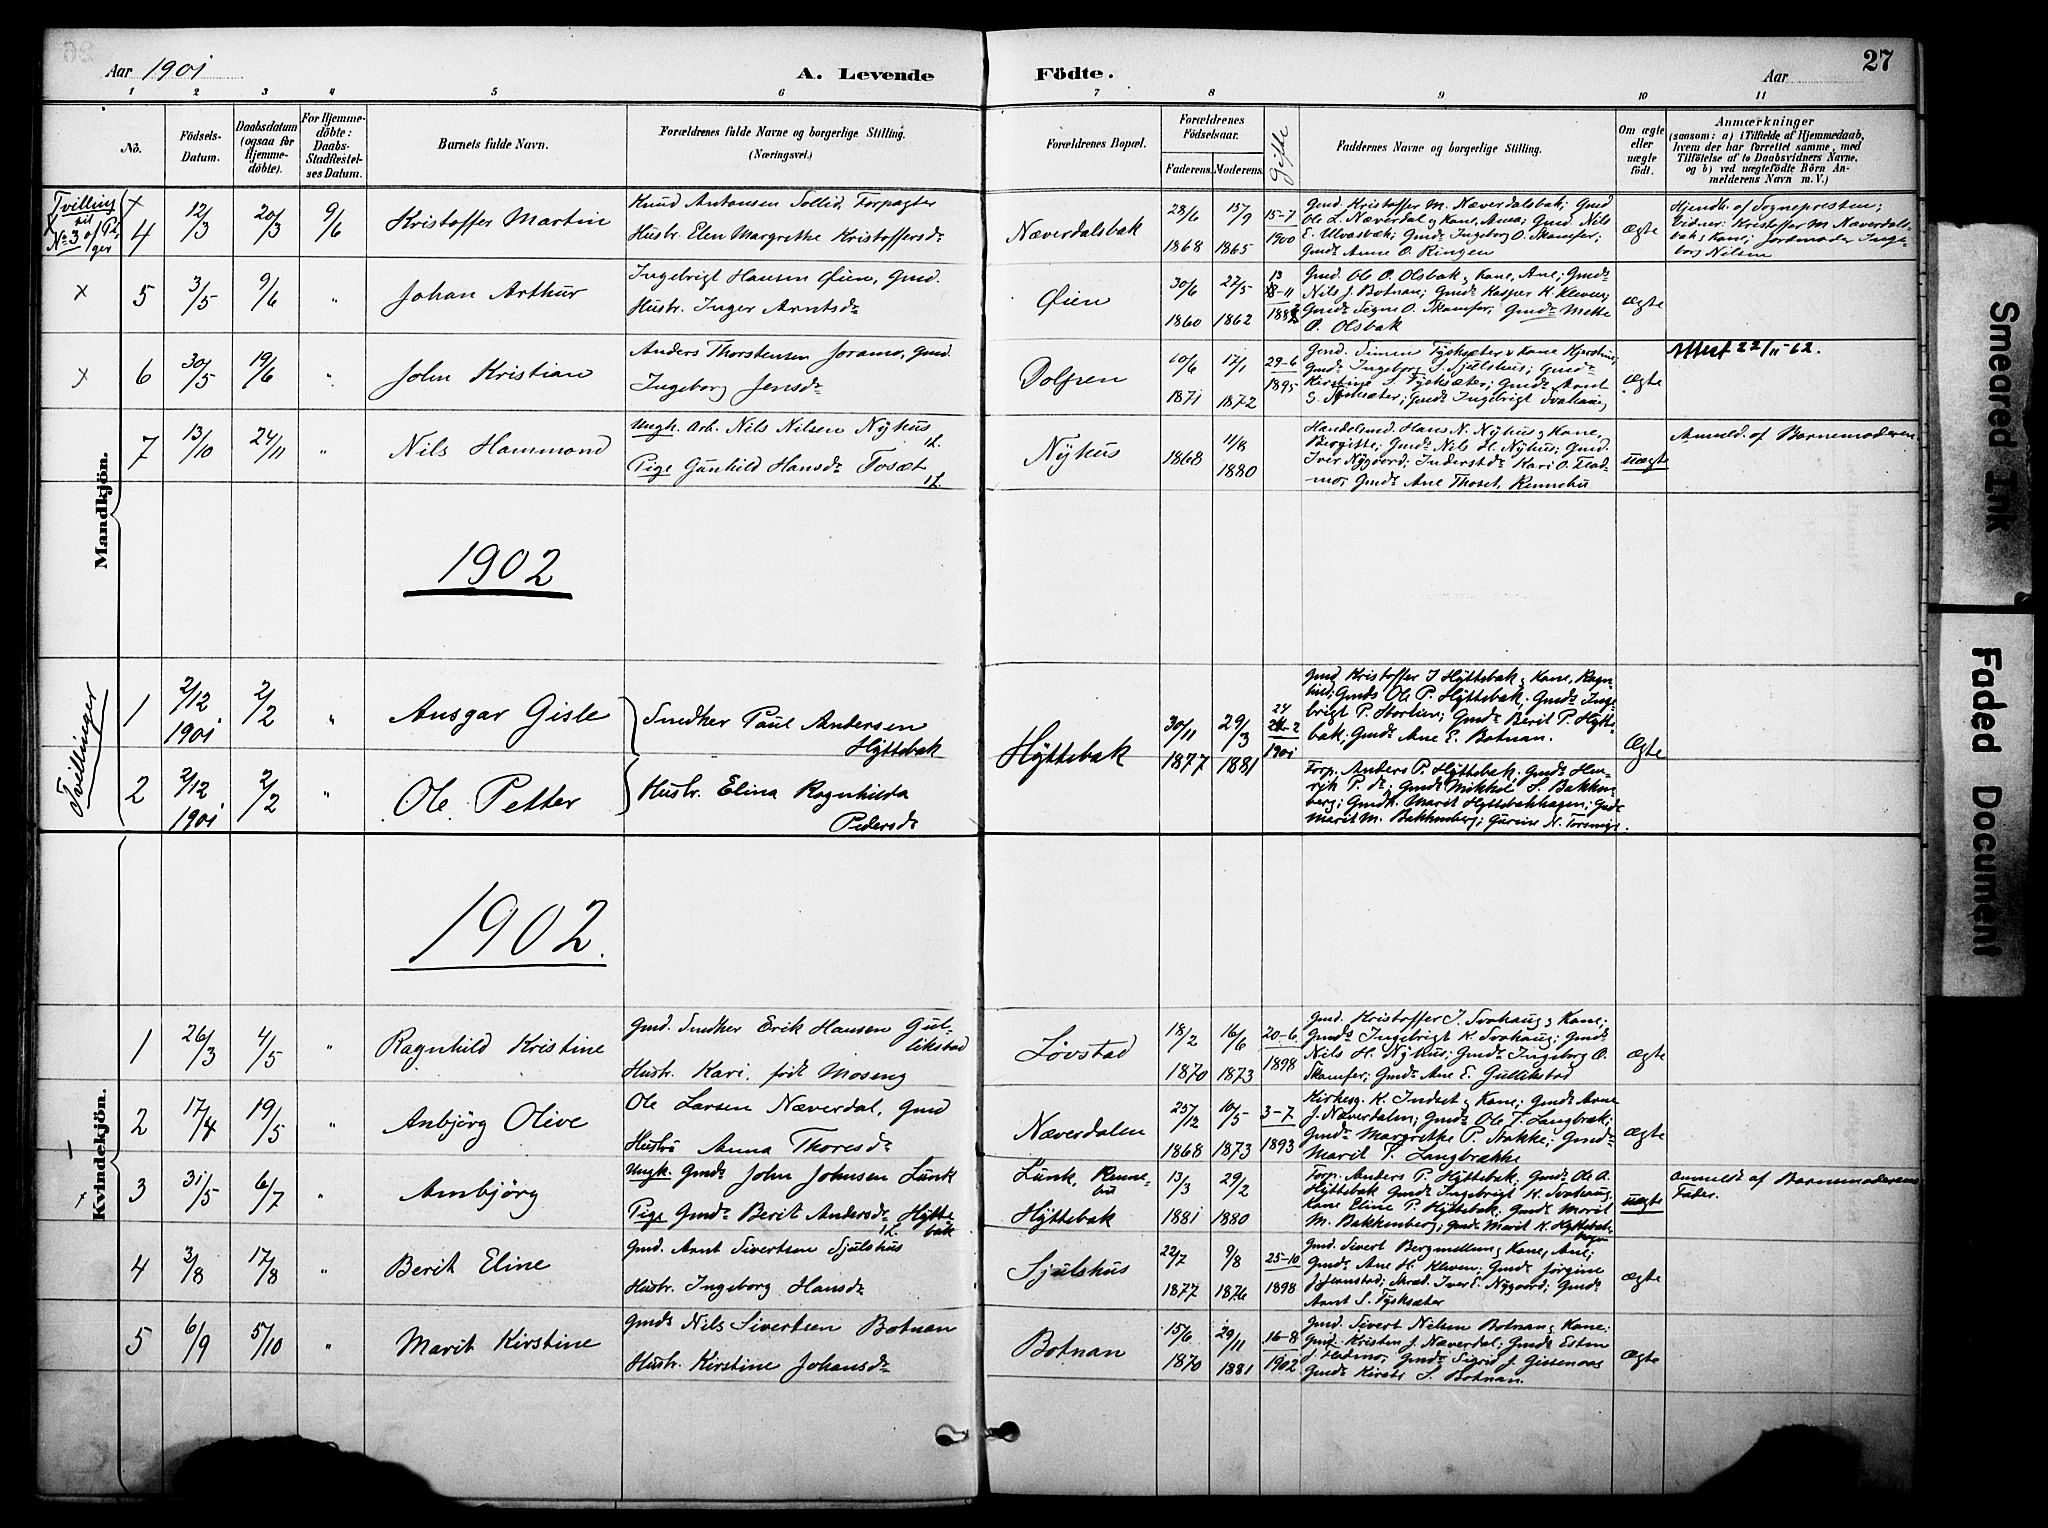 Aar 1901
A. Levende
Födte.
Aar
27
1 2 3 4 5 6 7 8 9 10 11
No.
Födsels-
Datum.
Daabsdatum
(ogsaa for
Hjemme-
döbte).
For Hjemme-
döbte:
Daabs-
Stadfæstel-
ses Datum.
Barnets fulde Navn.
Forældrenes fulde Navne og borgerlige Stilling.
(Næringsvei.)
Forældrenes Bopæl.
Forældrenes
Födselsaar.
Faderens. Moderens.
Gifte
Faddernes Navne og borgerlige Stilling.
Om ægte
eller
uægte
födt.
Anmærkninger
(saasom: a) i Tilfælde af Hjemmedaab,
hvem der har forrettet samme, med
Tilföielse af to Daabsvidners Navne,
og b) ved uægtefödte Börn An-
melderens Navn m. V.)
Mandkjön.
Tvilling
til
No 3 af Pi-
ger
4 12/3 20/3 9/6 Kristoffer Martin
Knud Antonsen Sollid, Forpagter
Hustr. Elen Margrethe Kristoffersdr
Næverdalsbak
28/6 1868 15/9 1865 15-7 1900
Gmd. Kristoffer M. Næverdalsbak; Gmd
Ole L. Næverdal & Kane, Anna; Gmd. Nils
E. Ulvasbæk; Gmdr Ingeborg O. Skamfer;
Gmdr Anne O. Ringen
ægte
Hjemdb. af Sognepresten;
Vidner: Kristoffer M. Næverdals-
bak & Kane; Jordmoder Inge-
borg Nilsen
5 3/5 9/6 " Johan Arthur
Ingebrigt Hansen Øien, Gmd.
Hustr. Inger Arntsdr
Øien
30/6 1860 27/5 1862
Gmd. Ole O. Olsbak & Kane, Ane; Gmds
Nils J. Botnan; Gmds Kasper K. Kleven;
Gmdr Signe O. Skamfer; Gmdr Mette
O. Olsbak
ægte
6 30/5 19/6 " John Kristian
Anders Thorstensen Joramo, Gmd.
Ingeborg Jensdr
Dolpen
10/6 1871 17/1 1872 29-6 1895
Gmd. Simen Tysksæter & Kane Kjerstine;
Gmdr Ingeborg S. Sjulshus; Gmdr
Kirstine S. Tysksæter; Gmds Arnt
S. Tysksæter; Gmds Ingebrigt Svohaug
ægte
Attest 22/11-62.
7 13/10 24/11 " Nils Hammond
Ungk. Arb. Nils Nilsen Nyhus
1ℓ.
Pige Gunhild Hansdr Tosæt
1ℓ.
Nyhus
1868 11/8 1880
Handelsmd. Hans N. Nyhus & Kane,
Bergitte; Gmds Nils H. Nyhus; Gmd.
Iver Nygoard; Inderstdr Kari O. Flad-
mo; Gmdr Ane Thoset, Rennebu
uægte
Anmeld. af Barnemoderen.
1902
Tvillinger
1 2/12 1901 2/2 " Ansgar Gisle
Snedker Paul Andersen
Hyttebak
Hyttebak
30/11 1877 29/3 1881 1901
Gmd Kristoffer J Hyttebak & Kane, Ragn-
hild; Gmds Ole P. Hyttebak; Gmds Inge-
brigt P. Stortien; Gmdr Berit P. Hytte-
bak; Gmdr Ane E. Botnan.
Ægte
2 2/12 1901 2/2 " Ole Petter
Hustr. Elina Ragnhilda
Pedersdr
Forp. Anders P. Hyttebak; Gmds Hen-
rik P. do; Gmds Mikkel S. Bakken-
berg; Gmdk. Marit Hyttebakhagen; Gmdr
Marit M. Bakkenberg; Gurine N. Torsmyr.
1902.
Kvindekjön.
1 26/3 4/5 " Ragnhild Kristine
Gmd. Snedker Erik Hansen Gul-
likstad
Hustr. Kari, født Moseng
Løvstad
18/2 1870 16/6 1873 20-6 1898
Gmd. Kristoffer J. Svohaug & Kane;
Gmds Ingebrigt K. Svohaug; Gmds
Nils H. Nyhus; Gmdr Ingeborg O.
Skamfer; Gmdr Ane E. Gullikstad
ægte
2 17/4 19/5 " Anbjörg Olive
Ole Larsen Næverdal, Gmd
Hustru Anna Thoresdr
Næverdalen
25/12 1868 10/5 1873 3-7 1893
Kirkesg. K. Indset & Kane; Gmds Arne
J. Næverdalen; Gmds Ole T. Langbræk;
Gmdr Margrethe P. Stokke; Gmdr
Marit T. Langbrække
ægte
3 31/5 6/7 " Ambjörg
Ungk. Gmds John Johnsen Lunk
Pige Gmdr Berit Andersdr Hytte-
bak
1ℓ.
Lunk, Renne-
bu
Hyttebak
13/3 1881 29/2 1880
Forp. Anders P. Hyttebak; Gmds Ole A.
Hyttebak Gmds Ingebrigt K. Svohaug,
Kane Eline P. Hyttebak; Gmdr Marit
M. Bakkenberg; Gmdr Marit K. Hyttebak-
hagen
uægte
Anmeldt af Barnemoderens
Fader.
4 3/8 17/8 " Berit Eline
Gmd. Arnt Sivertsen Sjulshus
Hustr. Ingeborg Hansdr
Sjulshus
22/7 1877 9/8 1876 25-10 1898
Gmd. Sivert Bergmellum & Kane, Ane;
Gmdr Ane H. Kleven; Gmdr Jörgine
J. Jernstad; Skræd. Iver E. Nygoard; Gmds
Arnt S. Tysksæter
ægte
5 6/9 5/10 " Marit Kirstine
Gmds Nils Sivertsen Botnan
Hustr. Kirstine Johansdr
Botnan
15/6 1870 29/11 1881 16-8 1902
Gmd. Sivert Nilsen Botnan & Kane;
Gmd. Kristen J. Næverdal; Gmds Esten
J. Fladmo; Gmdr Sigrid J. Gissenaas
Gmdr Kirsti S. Botnan.
ægte
Smeared Ink
Faded Document